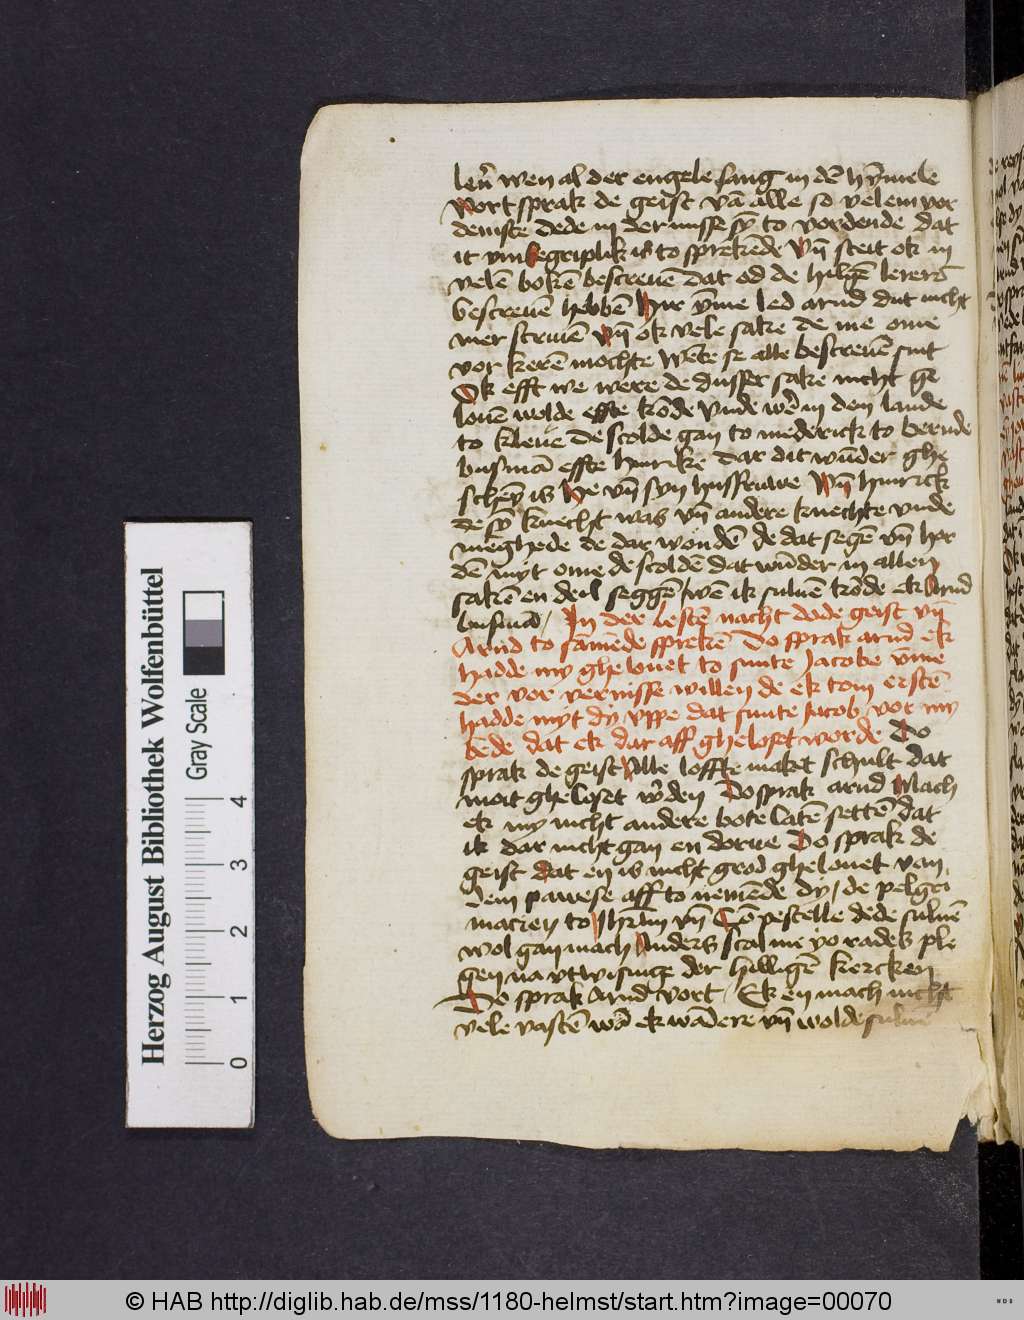 lerē wen al der engele sang in dē hȳmele
Vort sprak de geist vā alle so velem vor
denste dede in der misse sȳ to vordende dat
it vmbegriplik is to sprekēde vn̄ steit ok in
velē bokē bescreuē dat od de hilgē lerers
bescreuē hebbē Hir ȳme led arnd dut nicht
mer scriuē vn̄ ok vele sake de me ome
vor kerē mochte wēte se alle bescreuē sint
Ok efft we were de dusser sake nicht ge
louē wolde effte kōde vnde wē in den lande
to kleue de scolde gan to mederick to bernde
busmā effte hinrike dar dit wūder ghe
schēȳ is he vn̄ syn husfrawe vn̄ hinrick
de sȳ knecht was vn̄ andere knechte vnde
meghede de dar wondē de dat segē vn̄ hor
dē myt ome de scoldē dat wūder in allen
sakē en deil seggē wē ik suluē kōde ek Arnd
busmā / In der lestē nacht dode geist vn̄
Arnd to samēde sprekē Do sprak arnd ek
hadde my ghelouet to sunte Jacobe v̄me
der vor vernisse willen de ek tom erstē
hadde myt dy vppe dat sunte Jacob vor my
bede dat ek dar aff gheloset worde Do
sprak de geist Alle loffte maket schult dat
mot gheloset w̄den Do sprak arnd Mach
ek my nicht andere bote latē settē dat
ik dar nicht gan en dorue Do sprak de
geist dat en is nicht grod ghelouet van
dem pawese aff to nemēde dy / de pelgri
macien to Jhrlm vn̄ Cō pestelle dede suluē
wol gan mach Anders scal me yo rades ple
gen na vtwisinge der hilligē kercken
Do sprak Arnd vort / Ek en mach nicht
vele vastē wā ek wādere vn̄ wolde suluē
Herzog August Bibliothek Wolfenbüttel
Gray Scale
0 1 2 3 4
© HAB http://diglib.hab.de/mss/1180-helmst/start.htm?image=00070